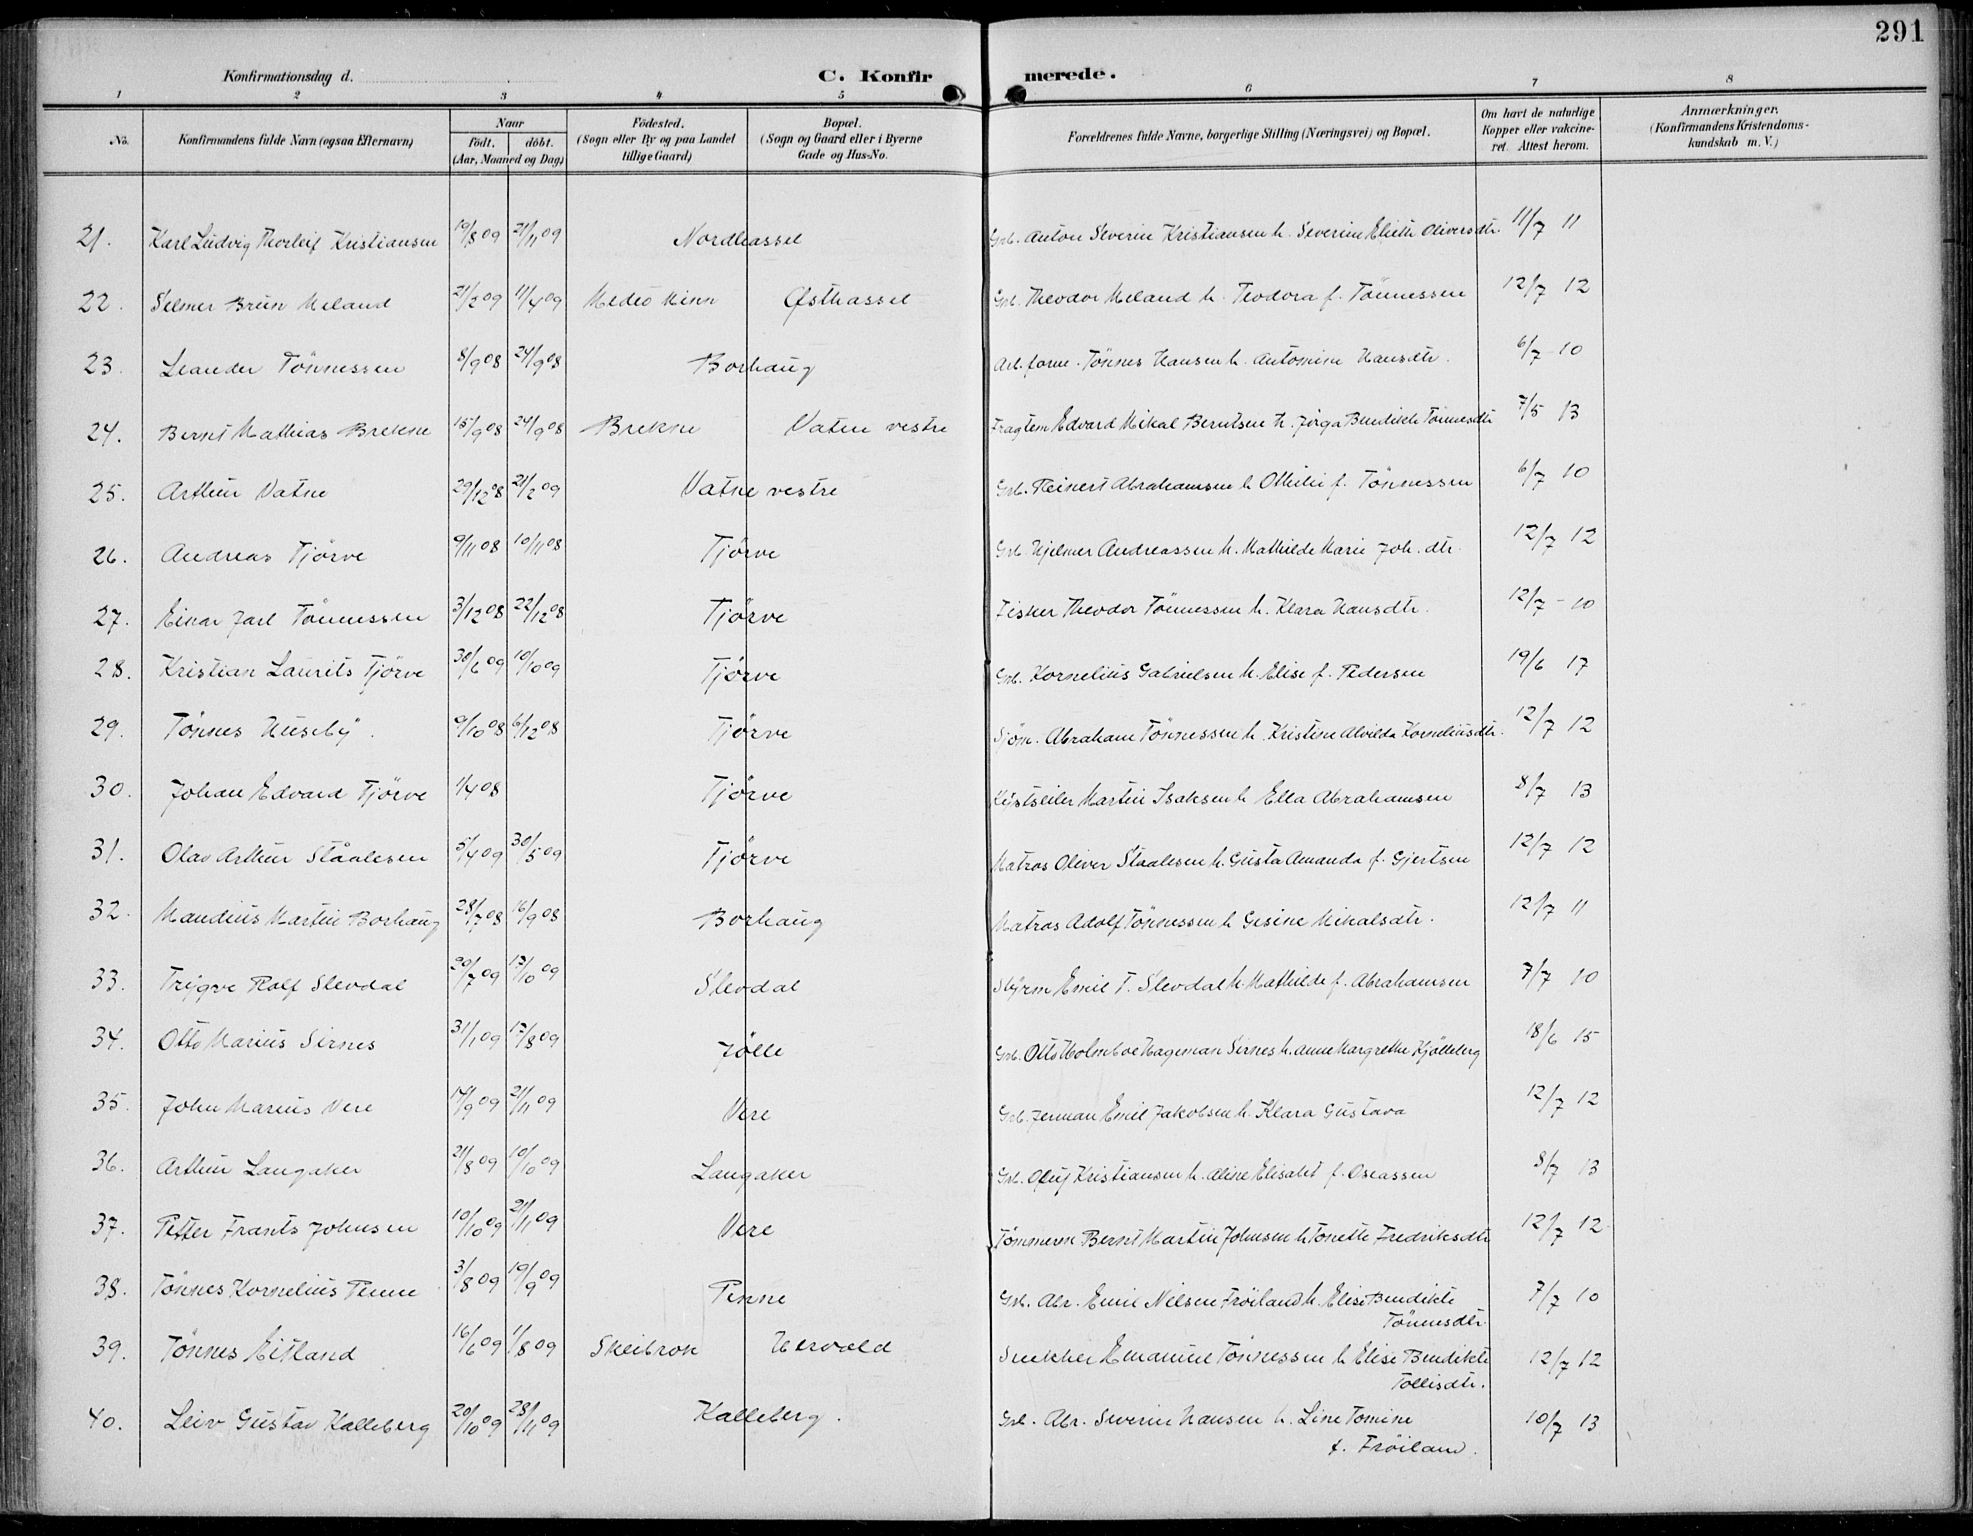 291
Konfirmationsdag d. C. Konfir merede.
1 2 3 4 5 6 7 8
No. Konfirmandens fulde Navn (ogsaa Efternavn) Naar födt. döbt. (Aar, Maaned og Dag) Födested. (Sogn eller By og paa Landet tillige Gaard) Bopæl. (Sogn og Gaard eller i Byerne Gade og Hus-No. Forældrenes fulde Navne, borgerlige Stilling (Næringsvei) og Bopæl. Om havt de naturlige Kopper eller vakcineret. Attest herom. Anmærkninger. (Konfirmandens Kristendomskundskab m. V.)
21. Karl Ludvig Thorleif Kristiansen 19/8 09 21/11 09 Nordhassel Grb. Anton Severin Kristiansen h. Severine Oliversdtr. 11/7 11
22. Selmer Brun Meland 21/2 09 11/4 09 Østhassel Grb. Theodor Meland h. Teodora f. Tönnessen 12/7 12
23. Leander Tönnessen 8/9 08 24/9 08 Borhaug Arb. form. Tönnes Hansen h. Antomine Hansdtr. 6/7 - 10
24. Bernt Mathias Brekne 15/9 08 24/9 08 Brekne Vatne vestre Edvard Mikal Berntsen h. Bendikte Tönnesdtr 7/5 13
25. Arthur Vatne 29/12 08 21/2 09 Vatne vestre Grb. Reinert Abrahamsen h. Othilie f. Tönnessen 6/7 10
26. Andreas Tjörve 9/11 08 10/11 08 Tjörve Grb Hjelmer Andreassen h. Mathilde Marie Joh. dtr. 12/7 12
27. Einar Jarl Tönnessen 3/12 08 22/12 08 Tjörve Fisker Theodor Tönnessen h. Klara Hansdtr. 12/7 - 10
28. Kristian Laurits Tjörve 30/6 09 10/10 09 Tjörve Grb. Kornelius Gabrielsen h. Elise f. Pedersen 19/6 17
29. Tönnes Huseby. 9/10 08 6/12 08 Tjörve Sjöm. Abraham Tönnessen h. Kristine Alvilda Korneliusdtr. 12/7 12
30. Johan Edvard Tjörve 1/4 08 Tjörve Kystseiler Martin Isaksen h Ella Abrahamsen 8/7 13
31. Olav Arthur Staalesen 5/4 09 30/5 09 Tjörve Matros Oliver Staalesen h. Gusta Amanda f. Gjertsen 12/7 12
32. Mandius Martin Borhaug 28/7 08 16/9 08 Borhaug Matros Adolf Tönnessen h Gesine Mikalsdtr. 12/7 11
33. Trygve Rolf Slevdal 20/7 09 17/10 09 Slevdal Styrm Emil T. Slevdal h. Mathilde f. Abrahamsen 7/7 10
34. Otto Marius Sirnes 31/1 09 17/8 09 Jölle Grb. Otto Holmboe Hageman Sirnes h. Anne Margrethe Kjölleberg 18/6 15
35. John Marius Vere 14/9 09 21/11 09 Vere Grb. Jerman Emil Jakobsen h. Klara Gustava 12/7 12
36. Arthur Langaker 21/8 09 10/10 09 Langaker Grb. Oluf Kristiansen h. Aline Elisabet f. Oseassen 8/7 13
37. Petter Frants Johnsen 10/10 09 21/11 09 Vere Tömmerm Bernt Martin Johnsen h Tonette Fredriksdtr 12/7 12
38. Tönnes Kornelius Penne 3/8 09 19/9 09 Penne Grb. Abr. Emil Nilsen Fröiland h. Elise Bendikte 7/7 10
Tönnesdtr
39. Tönnes Eitland 16/6 09 1/8 09 Skeibrok Hervold Snekker Emanuel Tönnessen h Elise Bendikte 12/7 12
Tollisdtr.
40. Leiv Gustav Kalleberg 20/10 09 28/11 09 Kalleberg. Grb. Abr. Severin Hansen h. Line Tomine 10/7 13
f. Fröiland.